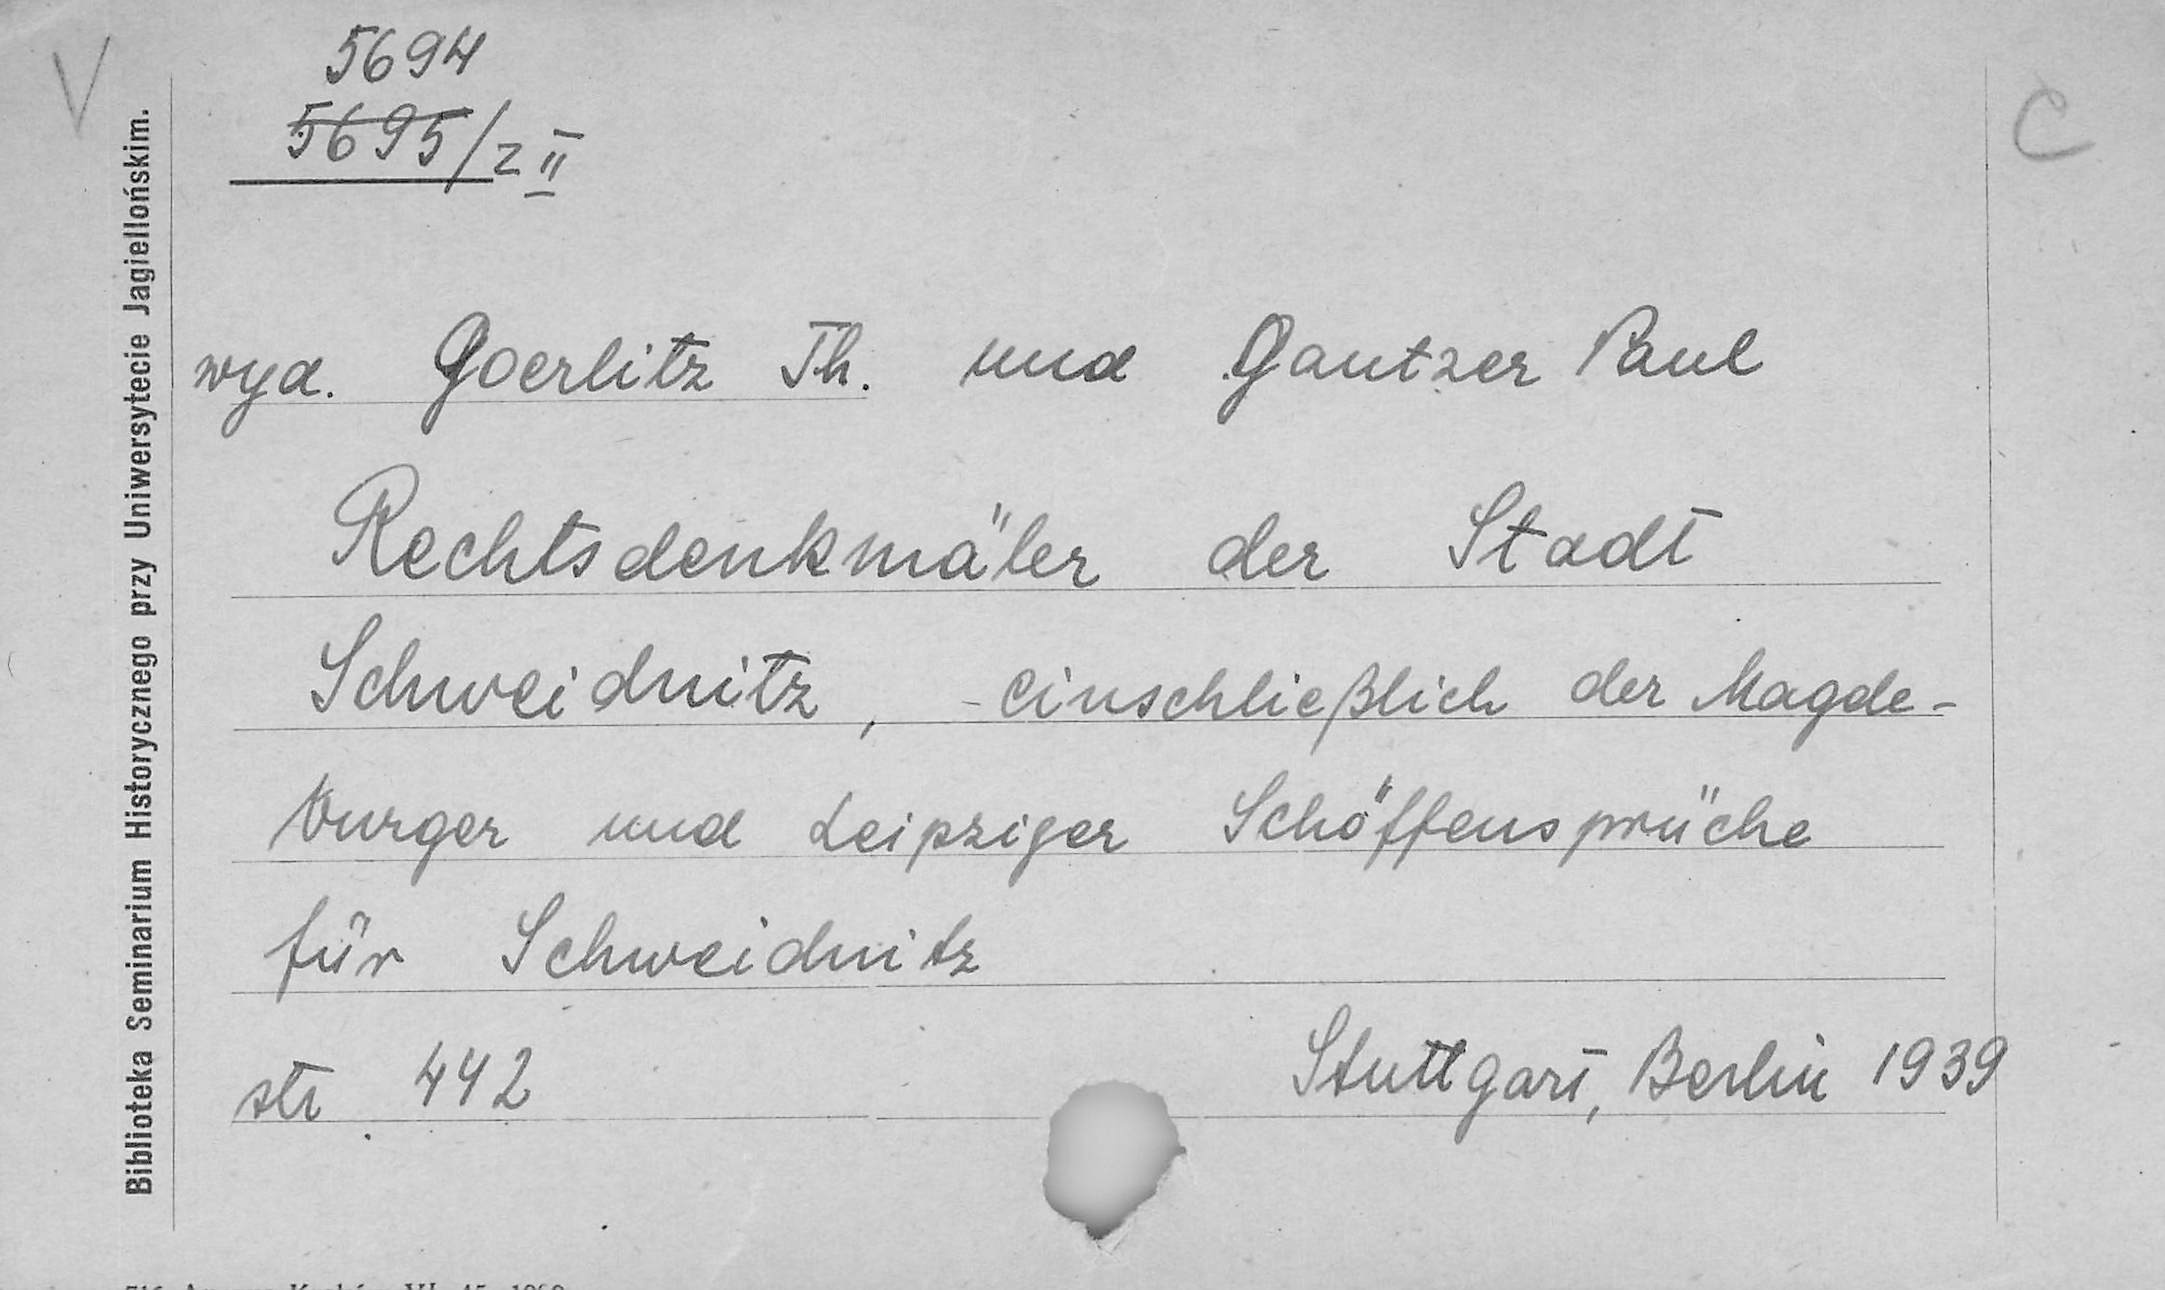 V
5694
5695/Z II
C
Biblioteka Seminarium Historycznego przy Uniwersytecie Jagiellońskim.
wyd. Goerlitz Th. und Gantzer Paul
Rechtsdenkmäler der Stadt
Schweidnitz, - einschließlich der Magde-
burger und Leipziger Schöffensprüche
für Schweidnitz
str 442
Stuttgart, Berlin 1939